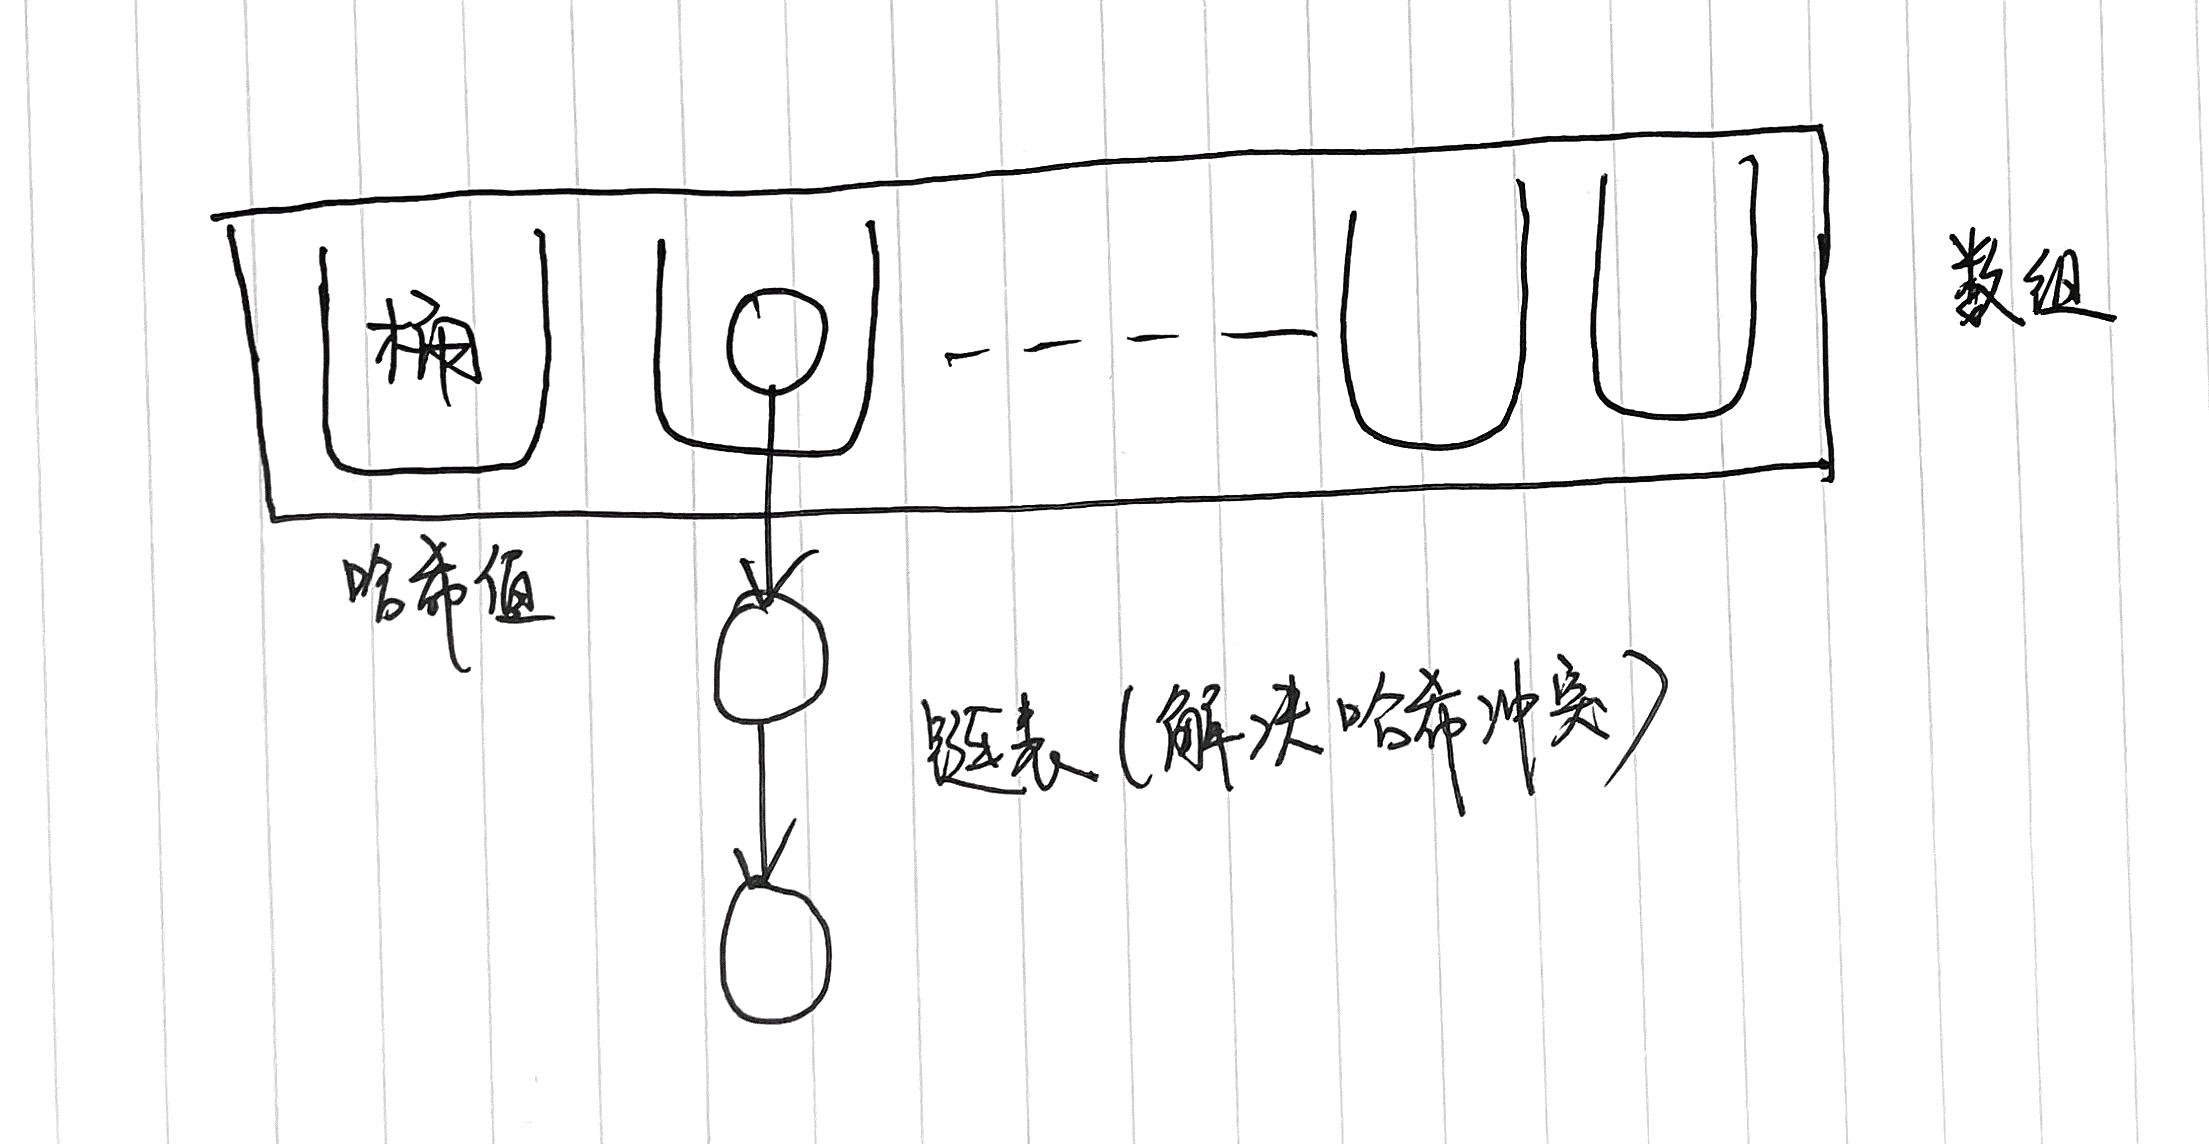 桶
数组
哈希值
链表(解决哈希冲突)